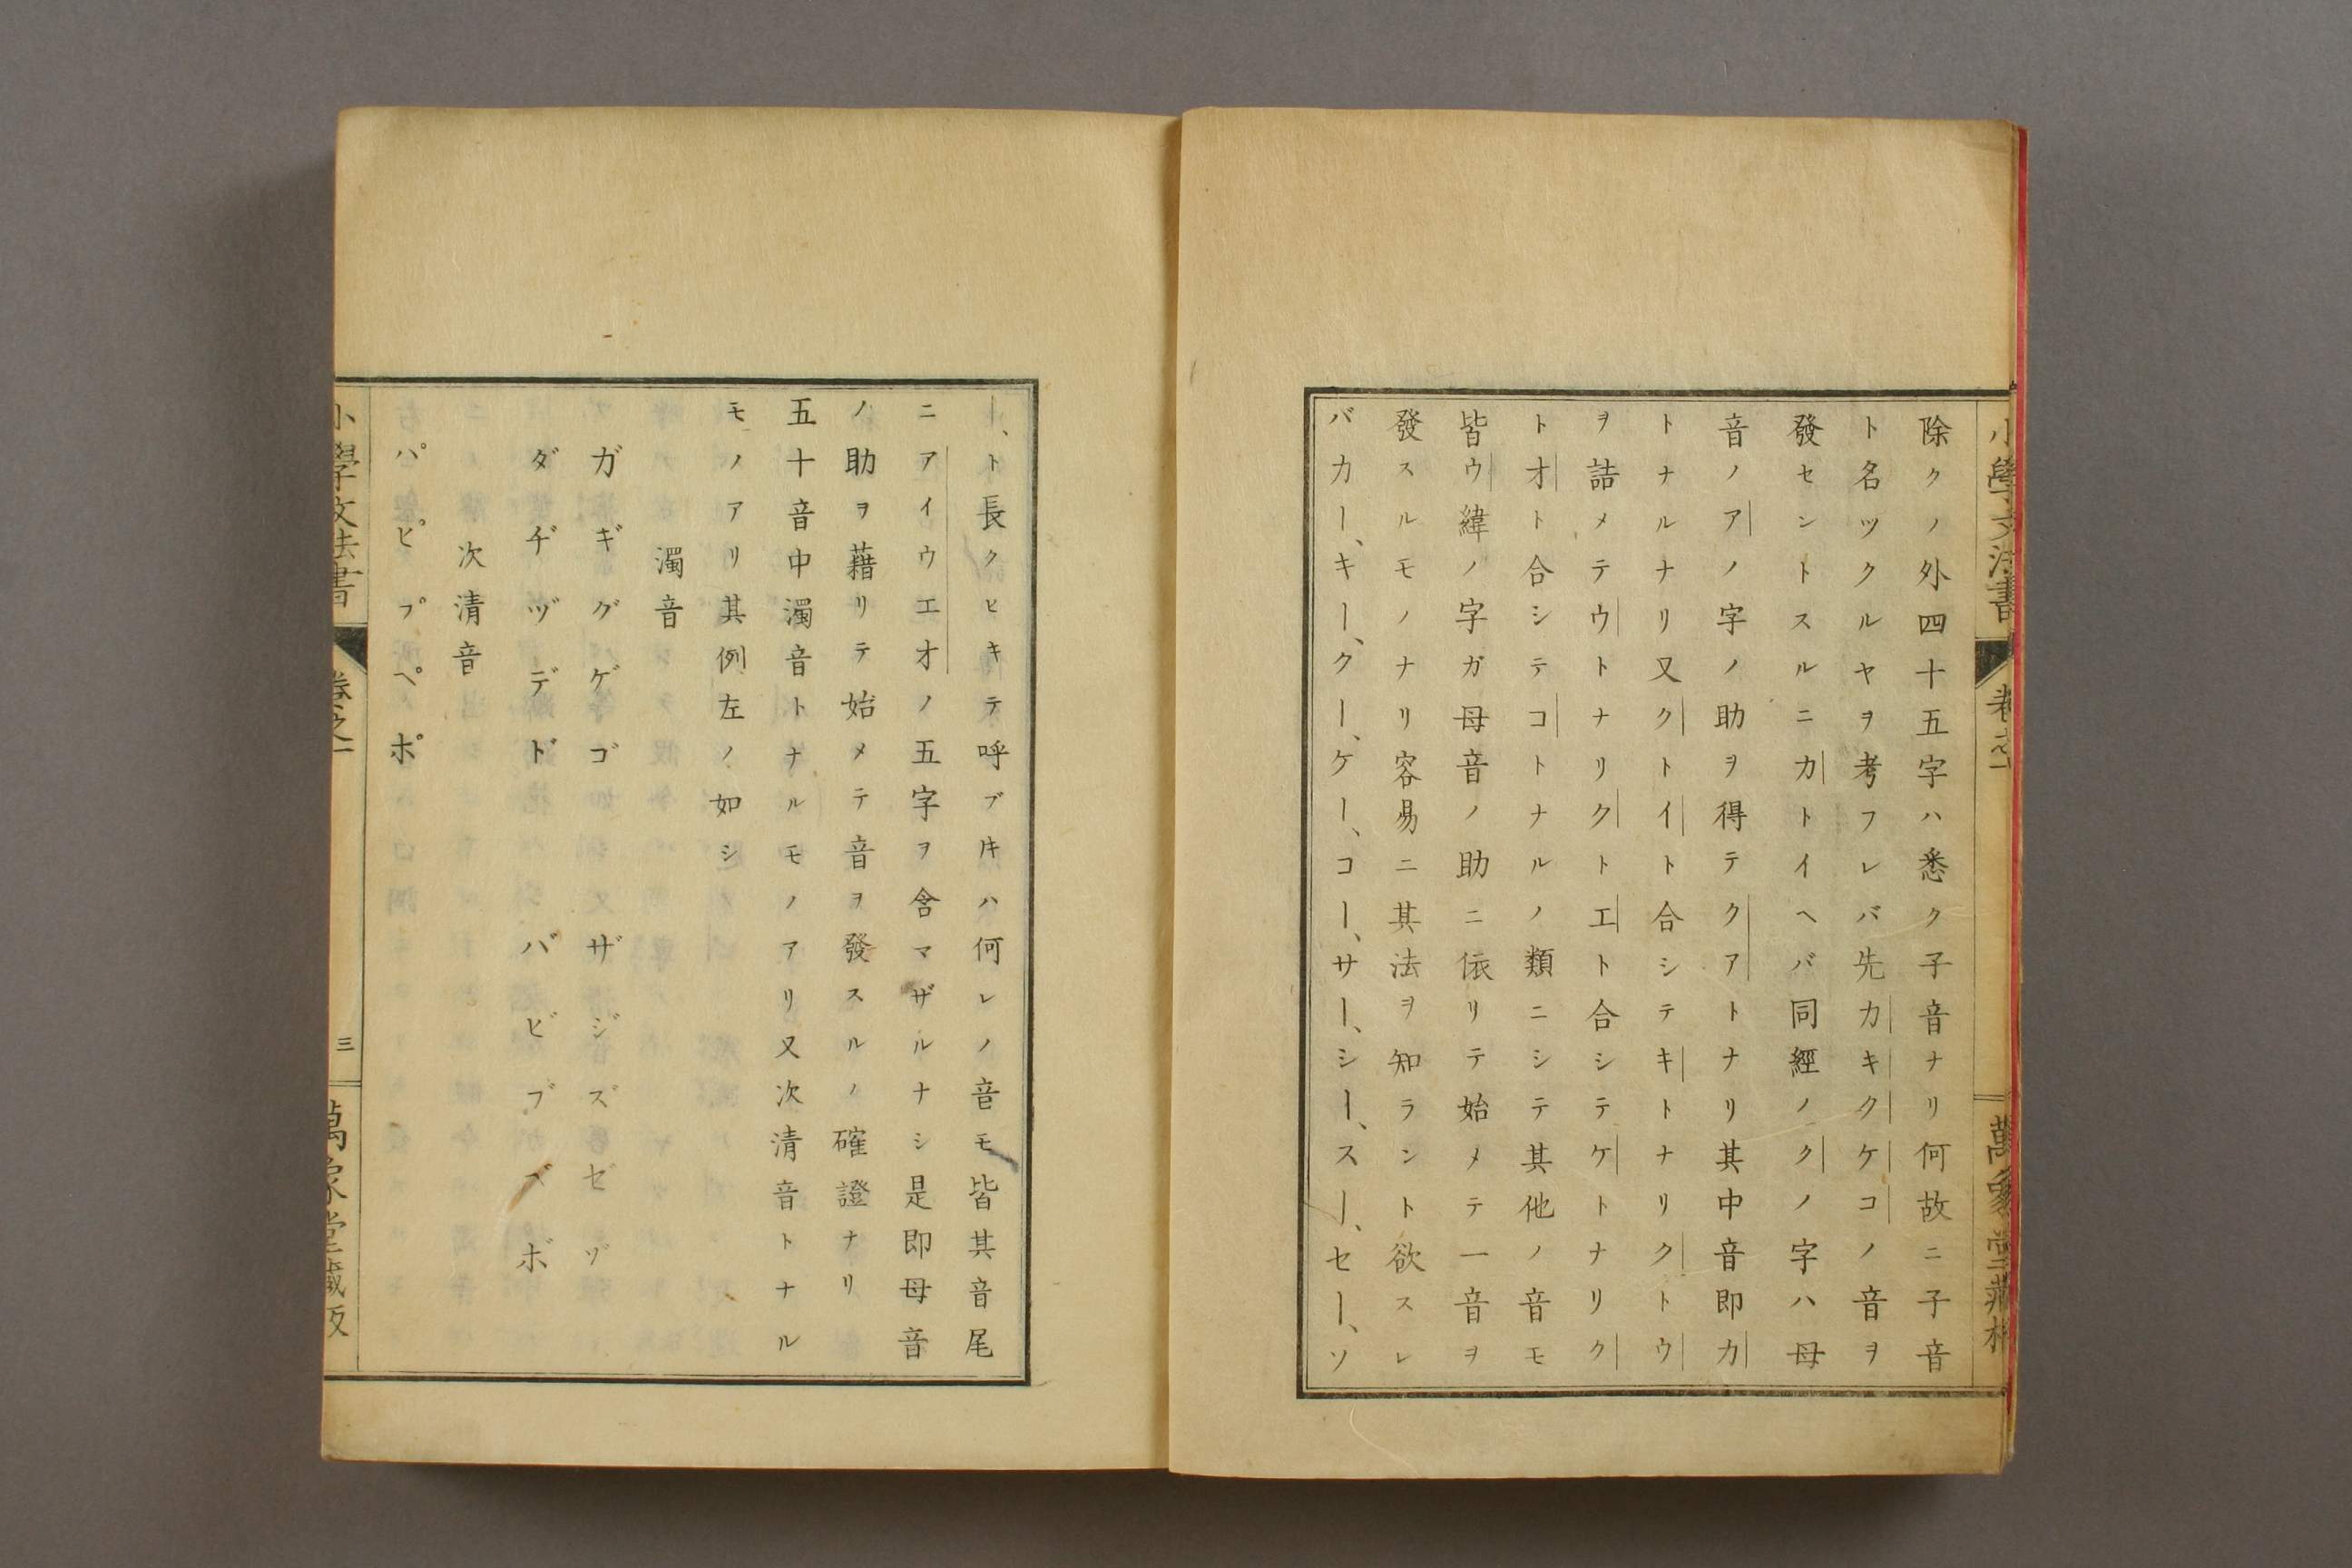 小學文法書 卷之一 萬象堂藏梓
除クノ外四十五字ハ悉ク子音ナリ何故ニ子音
ト名ツクルヤヲ考フレバ先カキクケコノ音ヲ
發セントスルニカトイヘバ同經ノクノ字ハ母
音ノアノ字ノ助ヲ得テクアトナリ其中音即カ
トナルナリ又クトイト合シテキトナリクトウ
ヲ詰メテウトナリクトエト合シテケトナリク
トオト合シテコトナルノ類ニシテ其他ノ音モ
皆ウ緯ノ字ガ母音ノ助ニ依リテ始メテ一音ヲ
發スルモノナリ容易ニ其法ヲ知ラント欲スレ
バカー、キー、クー、ケー、コー、サー、シー、スー、セー、ソ
ー、ト長クヒキテ呼ブ𪜈ハ何レノ音モ皆其音尾
ニアイウエオノ五字ヲ含マザルナシ是即母音
ノ助ヲ藉リテ始メテ音ヲ發スルノ確證ナリ
五十音中濁音トナルモノアリ又次清音トナル
モノアリ其例左ノ如シ
濁音
ガギグゲゴ ザジズゼゾ
ダヂヅデド バビブベボ
次清音
パピプペポ
小學文法書 卷之一 三 萬象堂藏版